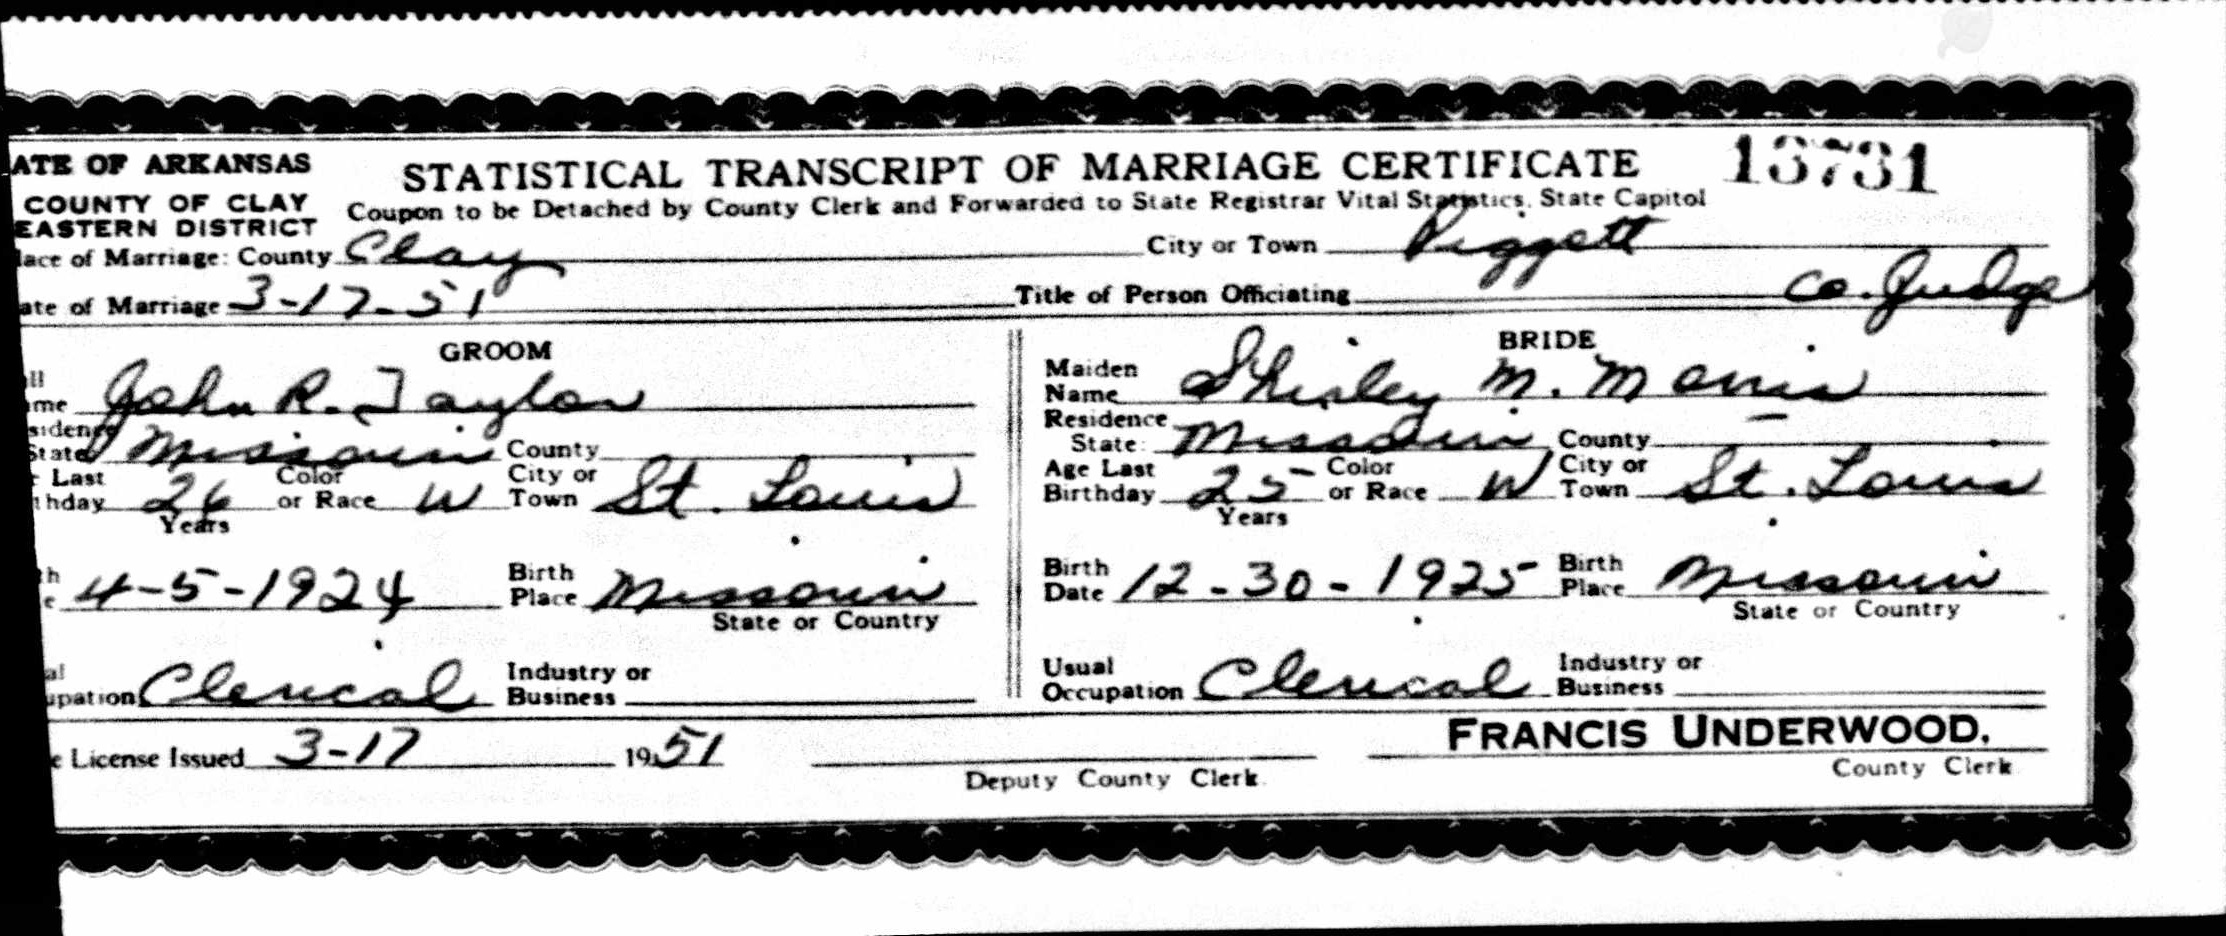 ATE OF ARKANSAS
COUNTY OF CLAY
EASTERN DISTRICT
STATISTICAL TRANSCRIPT OF MARRIAGE CERTIFICATE 13731
Coupon to be Detached by County Clerk and Forwarded to State Registrar Vital Statistics, State Capitol
lace of Marriage: County Clay City or Town Piggott
ate of Marriage 3-17-51 Title of Person Officiating Co. Judge
GROOM
ll
me John R. Taylor
sidence
State Missouri County
Last
thday 26 Years Color or Race W City or Town St. Louis
h
e 4-5-1924 Birth Place Missouri
State or Country
al
upation Clerical Industry or Business
BRIDE
Maiden Name Shirley M.
Residence State: Missouri County -
Age Last Birthday 25 Years Color or Race W City or Town St. Louis
Birth Date 12-30-1925 Birth Place Missouri
State or Country
Usual Occupation Clerical Industry or Business
e License Issued 3-17 1951
Deputy County Clerk.
FRANCIS UNDERWOOD,
County Clerk